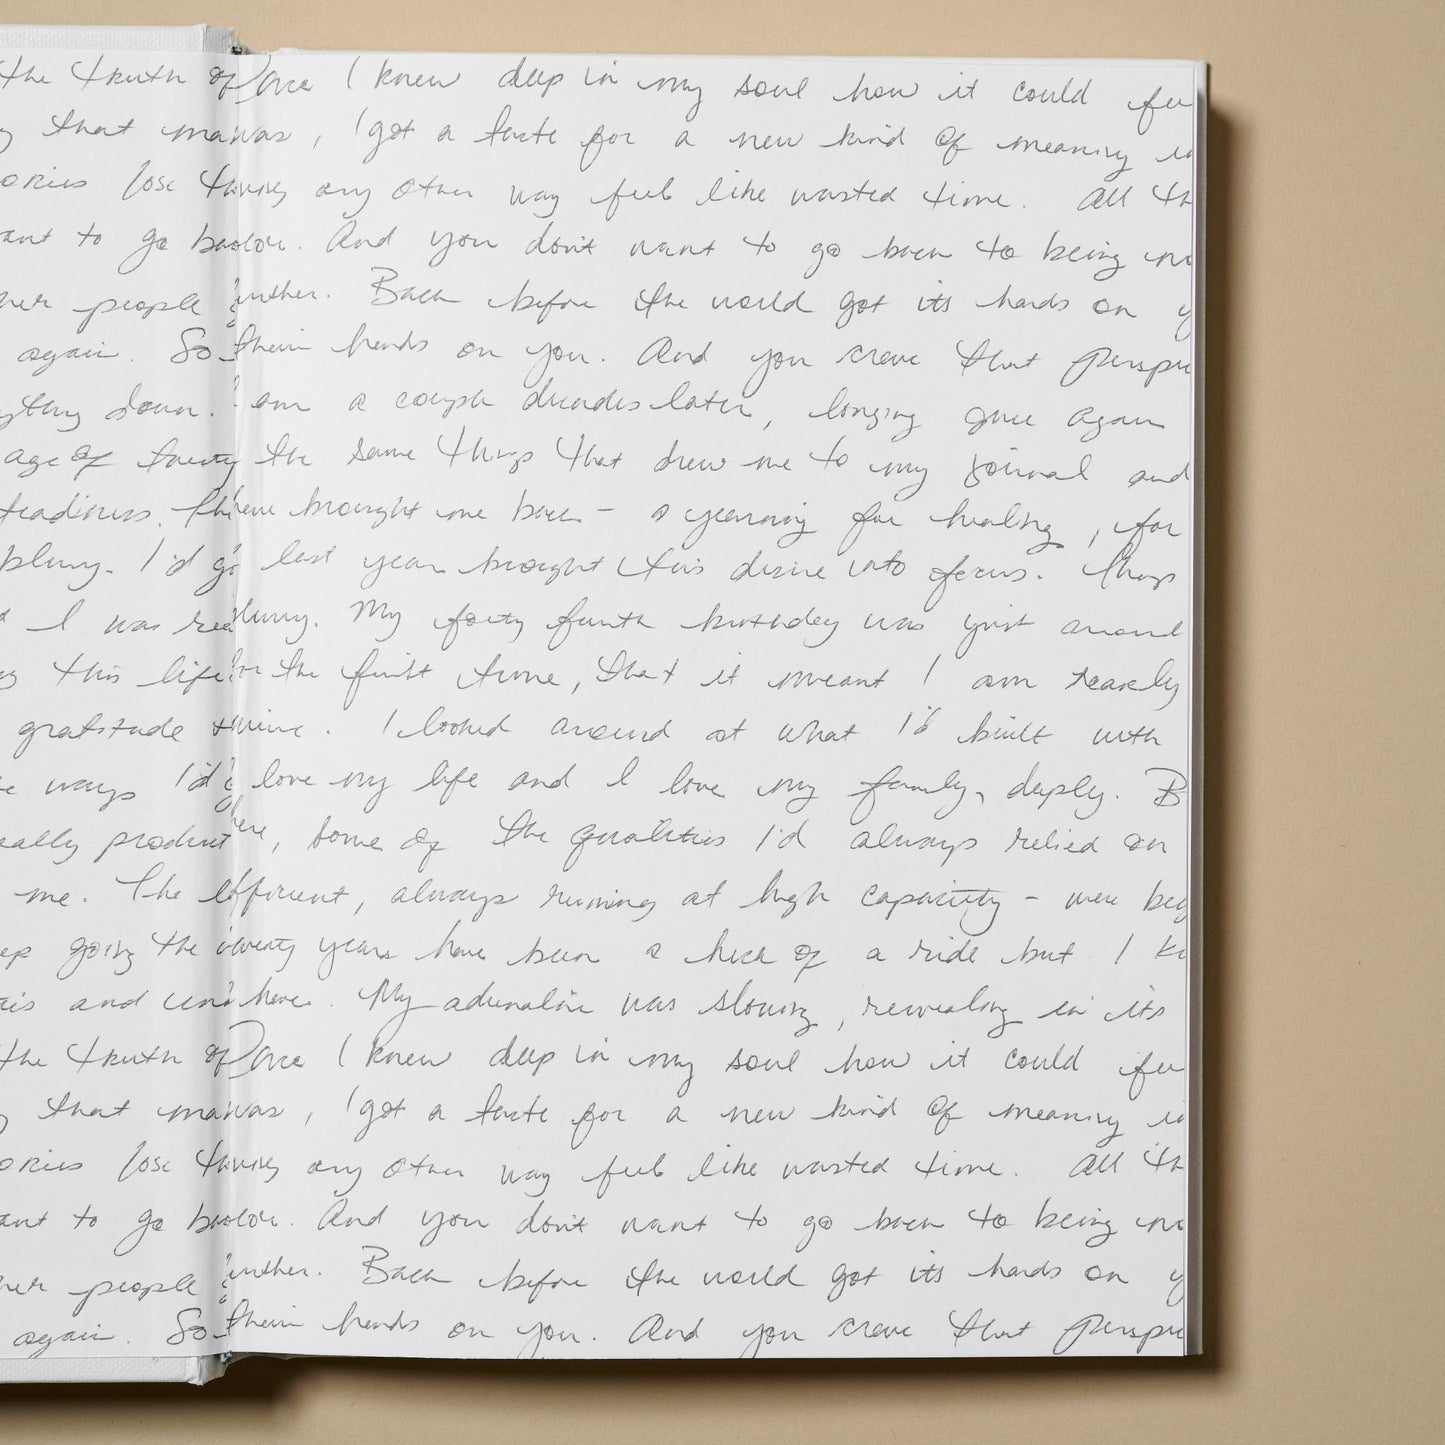 the truth of Once I knew deep in my soul how it could
that was, I got a taste for a new kind of meaning
lose any other way felt like wasted time. All
want to go And you don't want to go back to being
people further. Back before the world got its hands on
again. So their hands on you. And you crave that
down. I am a couple decades later, longing once again
age of twenty the same things that drew me to my journal and
steadiness. have brought me back - a yearning for healing, for
I'd last year brought this desire into focus. Things
I was blurry. My forty fourth birthday was just around
this life for the first time, that it meant I am squarely
gratitude I looked around at what I'd built with
ways I'd love my life and I love my family, deeply.
really product here, some of the qualities I'd always relied on
me. The efficient, always running at high capacity - were
going the twenty years have been a heck of a ride but I
and here. My adrenaline was slowing, revealing in its
the truth of Once I knew deep in my soul how it could
that was, I got a taste for a new kind of meaning
lose any other way felt like wasted time. All
want to go And you don't want to go back to being
people further. Back before the world got its hands on
again. So their hands on you. And you crave that